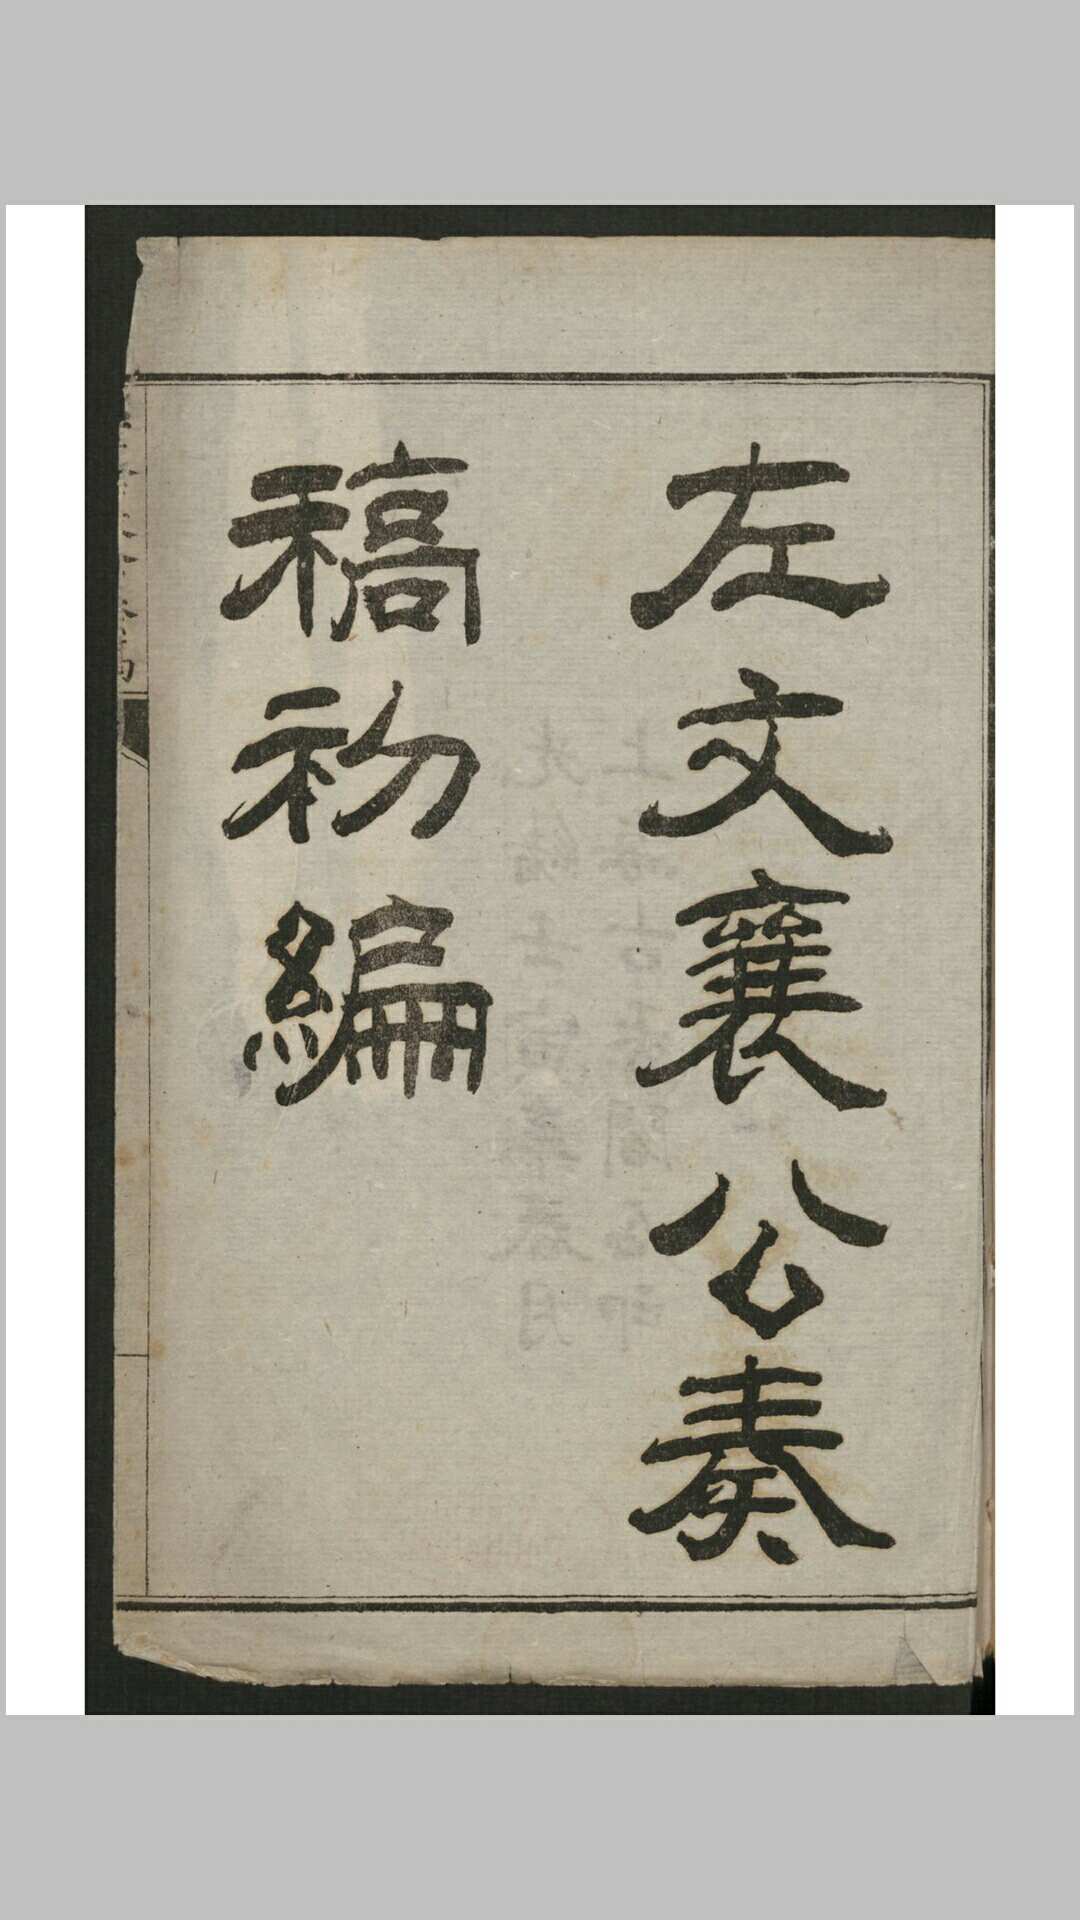 左文襄公奏
稿初編